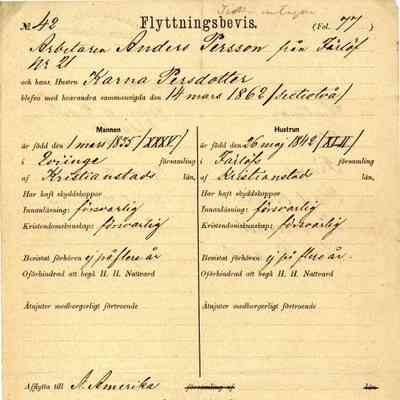 № 42 Flyttningsbevis. (Fol. 77)
Arbetaren Anders Persson från Färlöf
№ 21
och hans Hustru Karna Persdotter
blefvo med hvarandra sammanvigda den 14 mars 1862 /sextiotvå/
Mannen
är född den 1 mars 1835 /XXXV/
i Qviinge församling
af Kristianstads län,
Har haft skyddskoppor
Innanläsning: försvarlig
Kristendomskunskap: försvarlig
Bevistat förhören ej på flere år
Oförhindrad att begå H. H. Nattvard
Åtnjuter medborgerligt förtroende
Hustrun
är född den 26 maj 1842 /XLII/
i Färlöfs församling
af Kristianstad län,
Har haft skyddskoppor
Innanläsning: försvarlig
Kristendomskunskap: försvarlig
Bevistat förhören ej på flere år.
Oförhindrad att begå H. H. Nattvard
Åtnjuter medborgerligt förtroende
Afflytta till N. Amerika församling af län.